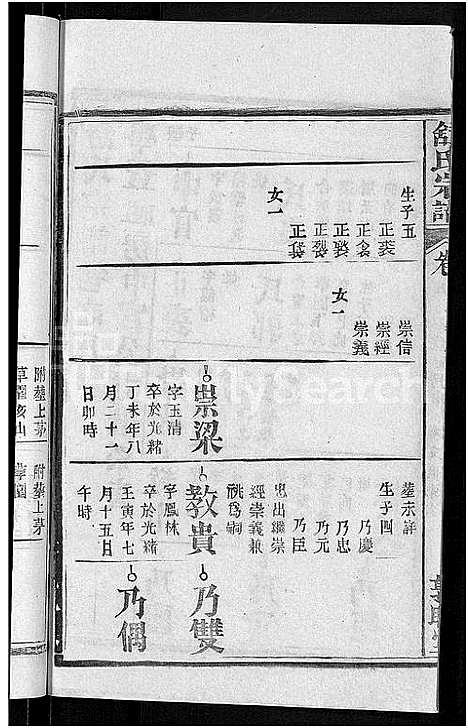 舒氏宗譜
卷
生子五
正裘
正袞
正褧
正裂
正袋
女一
崇信
崇經
崇義
女一
崇梁
字玉清
卒於光緒
丁未年八
月二十一
日卯時
墓未詳
生子四
乃慶
乃忠
乃元
乃臣
忠出繼崇
經崇義兼
祧為嗣
敦貴
字鳳林
卒於光緒
壬寅年七
月十五日
午時
乃雙
乃偶
附墓上茅
附葬上茅
FamilySearch